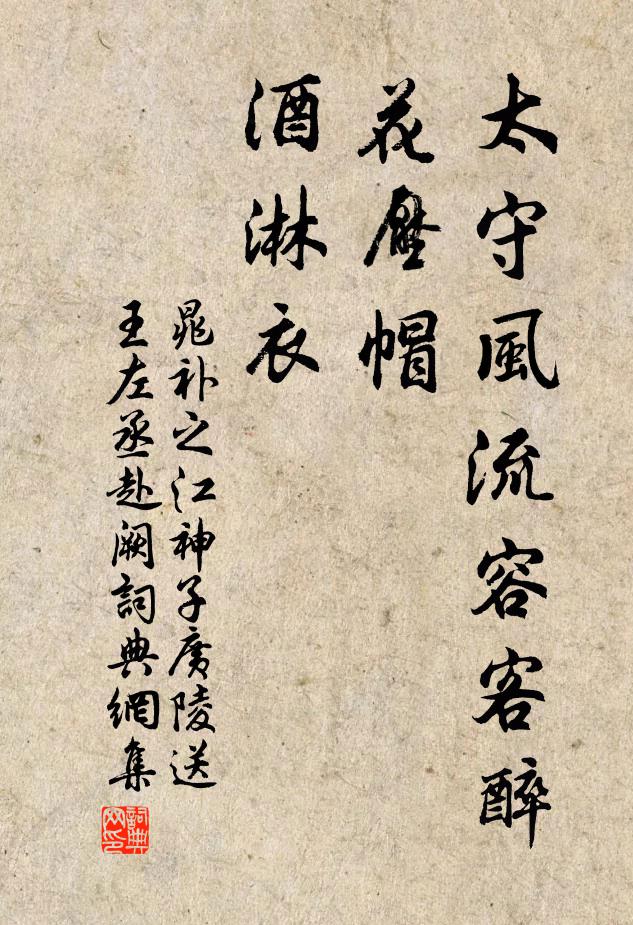 太守風流容客醉
花壓帽
酒淋衣
晁補之江神子廣陵送
王左丞赴闕詞典網集
詞典網印